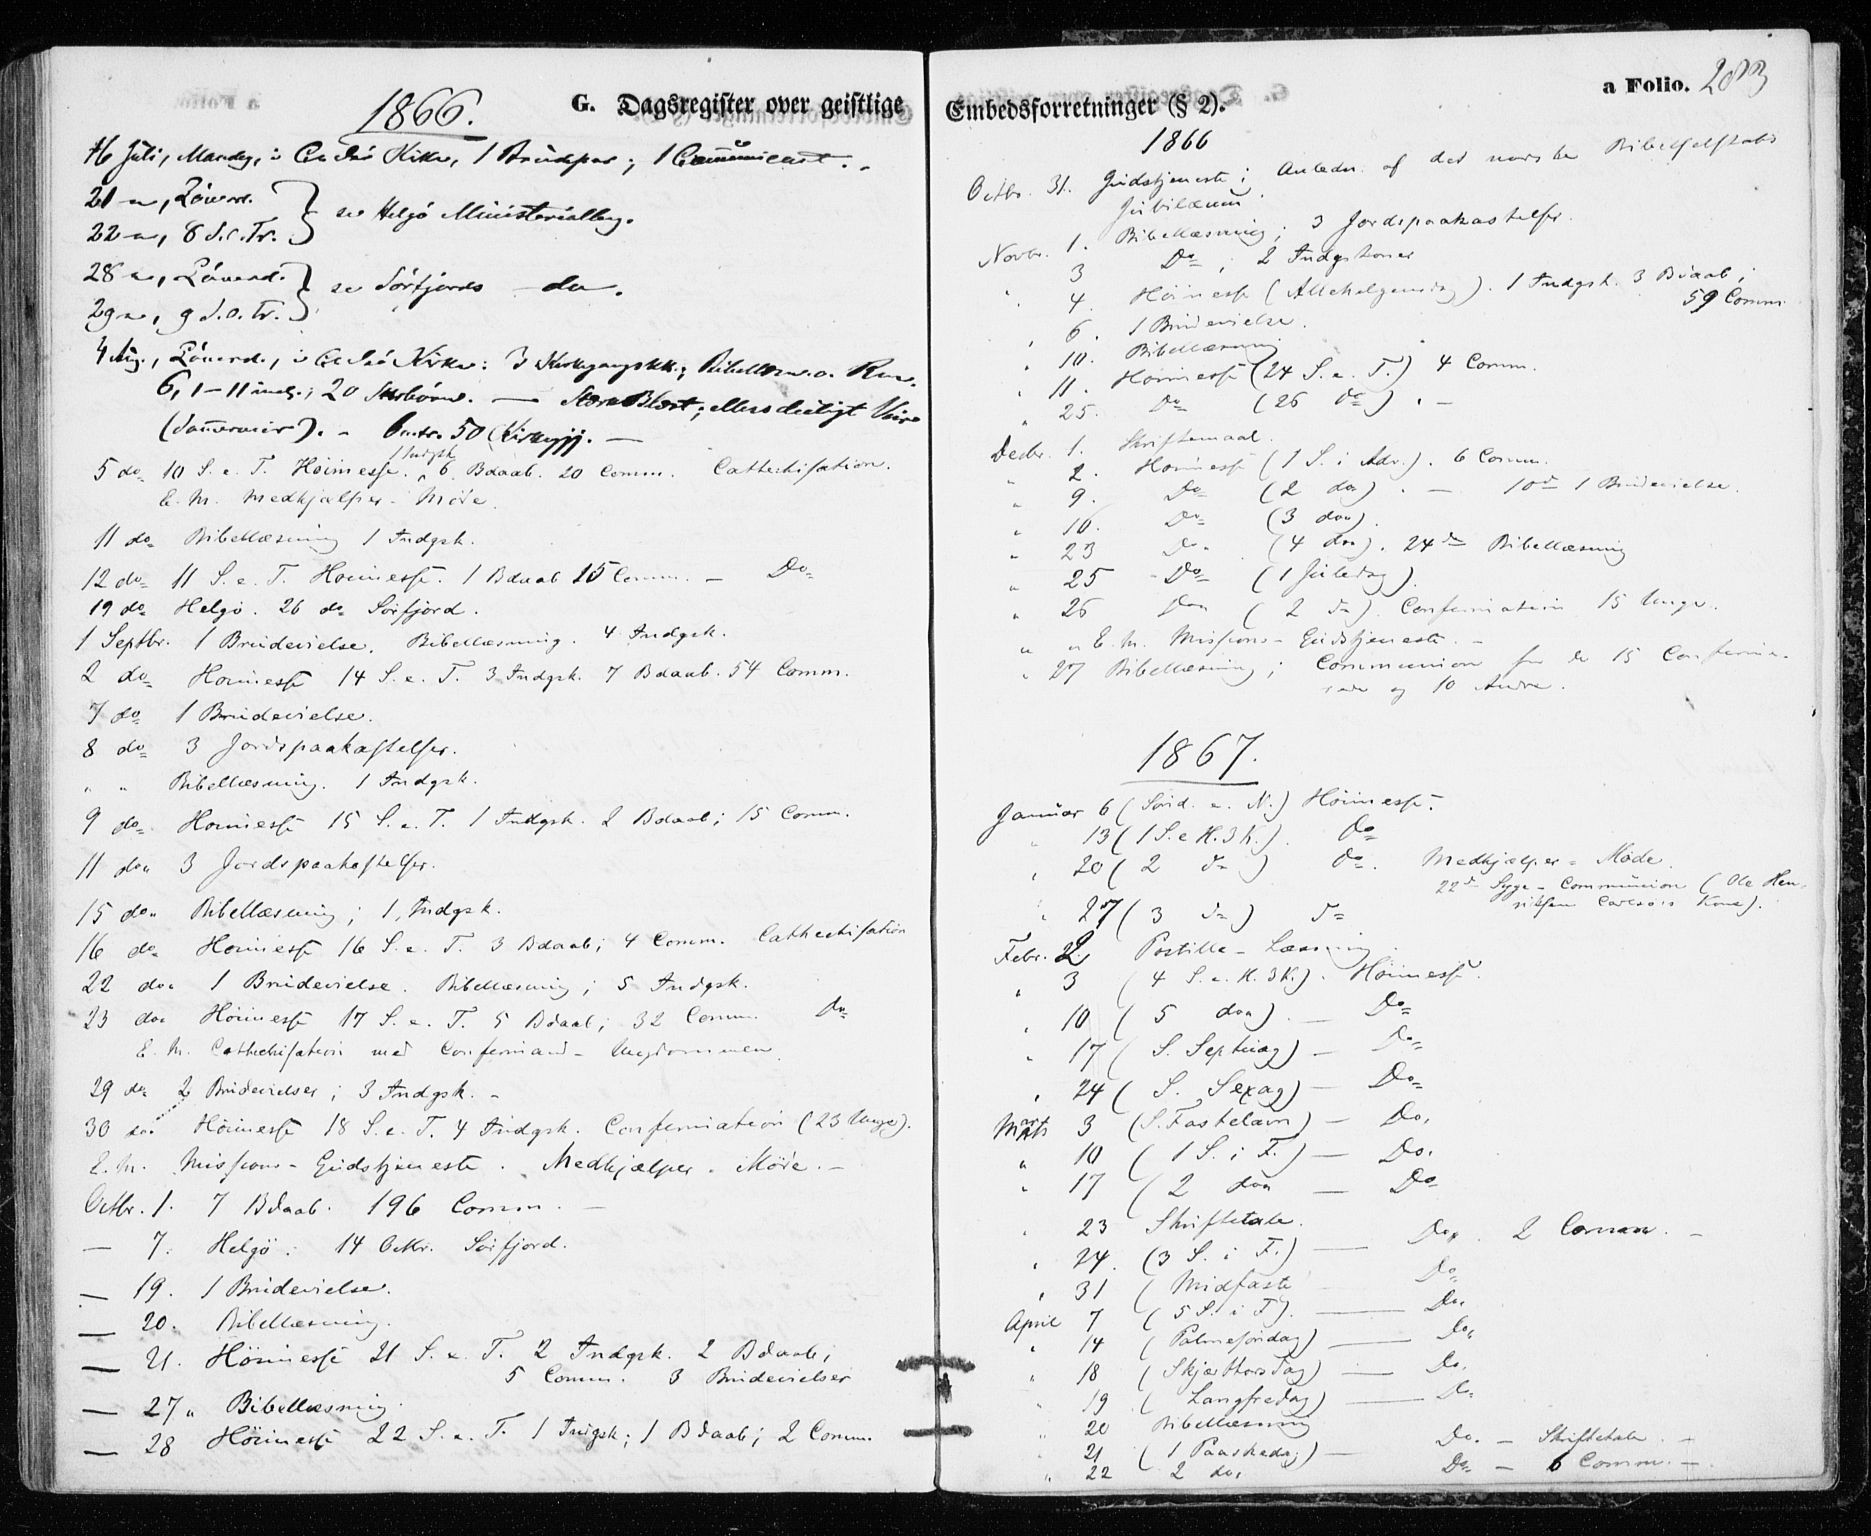 G. Dagsregister over geistlige
1866.
16 Juli, Mandag, i Carlsö Kirke, 1 Brudpar; 1 Communicant.
21 , Löverd.
22 , 8 S.e.Tr. } se Helgö Ministerialbog.
28 , Löverd.
29 , 9 S.e.Tr. } se Sörfjords do.
4 Aug., Löverd., i Carlsö Kirke: 3 Kirkegangskk.; Bibellæsn. o. Rom.
6, 1-11 incl.; 20 Skolebörn. — Stærk Blæst; ellers deiligt Veir
(Sommerveir). - Omtr. 50 Kirkegjj. —
5 do 10 S. e. T. Höimesse. 1 Indgsk 6 Bdaab. 20 Comm. Cathechisation.
E. M. Medhjælper-Möde.
11 do Bibellæsning 1 Indgsk.
12 do 11 S. e. T. Höimesse. 1 Bdaab 15 Comm. - Do
19 do Helgö. 26 do Sörfjord.
1 Septbr. 1 Brudevielse. Bibellæsning. 4 Indgsk.
2 do Höimesse 14 S. e. T. 3 Indgsk. 7 Bdaab. 54 Comm.
7 do 1 Brudevielse.
8 do 3 Jordspaakastelser.
" " Bibellæsning. 1 Indgsk.
9 do Höimesse 15 S. e. T. 1 Indgsk. 2 Bdaab; 15 Comm.
11 do 3 Jordspaakastelser.
15 do Bibellæsning; 1 Indgsk.
16 do Höimesse 16 S. e. T. 3 Bdaab; 4 Comm. Cathechisation
22 do 1 Brudevielse. Bibellæsning; 5 Indgsk.
23 do Höimesse 17 S. e. T. 5 Bdaab; 32 Comm. Do
E. M. Cathechisation med Confirmand-Ungdommen
29 do 2 Brudevielser; 3 Indgsk. -
30 do Höimesse 18 S. e. T. 4 Indgsk. Confirmation (23 Unge).
E. M. Missions-Gudstjeneste. Medhjælper-Möde. -
Octbr. 1. 7 Bdaab. 196 Comm. -
— 7. Helgö. 14 Octbr. Sörfjord.
— 19. 1 Brudevielse.
— 20. Bibellæsning.
— 21. Höimesse 21 S. e. T. 2 Indgsk. 2 Bdaab;
5 Comm. 3 Brudevielser
— 27 " Bibellæsning.
— 28 Höimesse 22 S. e. T. 1 Indgsk; 1 Bdaab; 2 Comm.
Embedsforretninger (§ 2).
a Folio. 203
1866
Octbr. 31. Gudstjeneste i Anledn. af det norske Bibelselskabs
Jubilæum.
Novbr. 1. Bibellæsning; 3 Jordspaakastelser.
" 3 Do; 2 Indgskoner
" 4. Höimesse (Allehelgensdag). 1 Indgsk. 3 Bdaab;
59 Comm.
" 6. 1 Brudevielse.
" 10. Bibellæsning
" 11. Höimesse (24 S. e. T.) 4 Comm.
" 25. Do (26 do). -
Decbr. 1. Skriftemaal.
" 2. Höimesse (1 S. i Adv.). 6 Comm.
" 9. Do (2 do). - 10de 1 Brudevielse.
" 16. Do (3 do).
" 23 Do (4 do). 24de Bibellæsning
" 25 Do (1 Juledag).
" 26 Do (2 do) Confirmation 15 Unge.
" " E. M. Missions-Gudstjeneste. -
" 27 Bibellæsning; Communion for de 15 Confirme-
rede og 10 Andre.
1867.
Januar 6 (Sönd. e. N.) Höimesse.
" 13 (1 S. e H. 3 K.). Do
" 20 (2 do) do. Medhjælper-Möde.
22de Syge-Communion (Ole Hen-
riksens Carlsö's Kone).
" 27 (3 do) do
Febr. 2. Postille-Læsning.
" 3 (4 S. e. H. 3 K.). Höimesse.
" 10 (5 do). — Do
" 17 (S. Septuag) — Do
" 24 (S. Sexag) — Do
Marts 3 (S. Fastelavn) — Do.
" 10 (1 S. i F.) — Do.
" 17 (2 do — Do
" 23 Skriftetale.
" 24. (3 S. i F.) — Do. 2 Comm. -
" 31 (Midfaste — Do
April 7 (5 S. i F). — Do.
" 14 (Palmesöndag) — Do.
" 18 (Skjærthorsdag) — Do.
" 19 (Langfredag) — Do
" 20 Bibellæsning
" 21 (1 Paaskedag) — Do. - Skriftetale. -
" 22 2 do. Do - 6 Comm. -